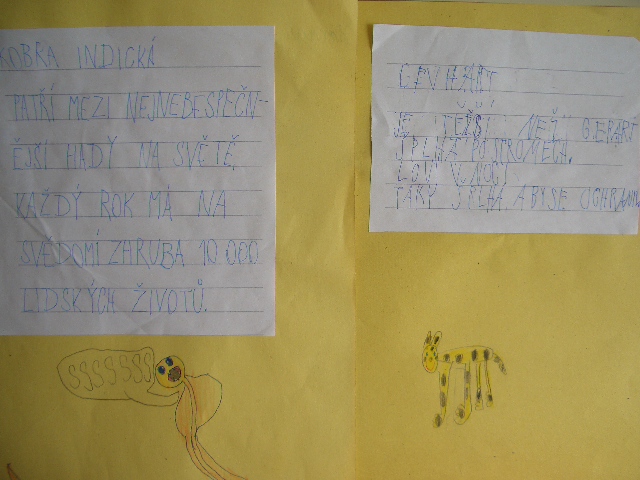 KOBRA INDICKÁ
PATŘÍ MEZI NEJNEBESPEČNĚ-
ĚJŠÍ HADY NA SVĚTĚ.
KAŽDÝ ROK MÁ NA
SVĚDOMÍ ZHRUBA 10 000
LIDSKÝCH ŽIVOTŮ.
SSSSSSS
JE TĚŽŠÍ NEŽ GEPART
ŠPLHÁ PO STROMECH.
LOVÍ V NOCI
TAKY ŠPLHÁ ABY SE OCHRÁNIL